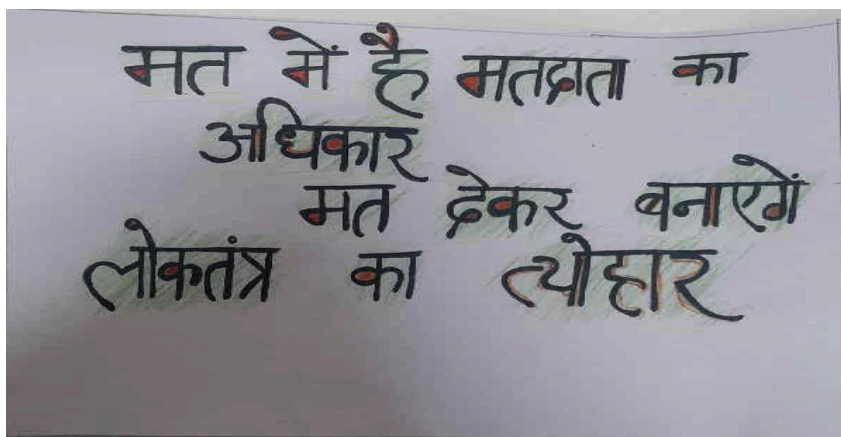 मत में है मतदाता का
अधिकार
मत देकर बनाएगें
लोकतंत्र का त्योहार